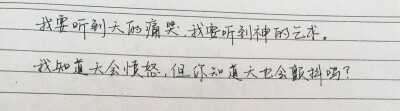 我要听到大的痛哭，我要听到神的乞求。
我知道天会愤怒，但你知道天也会颤抖吗？